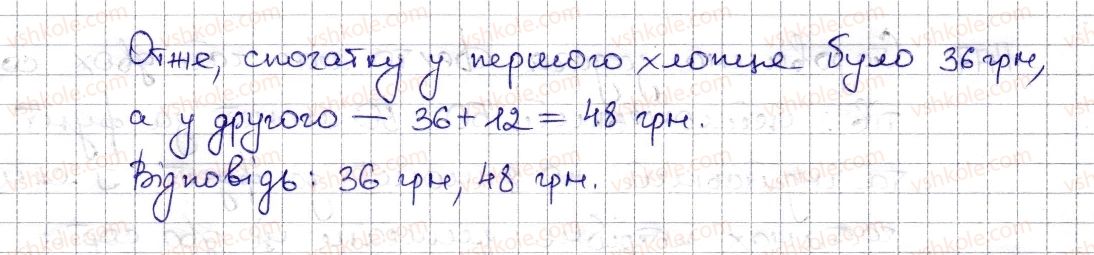 Отже, спочатку у першого хлопця було 36 грн,
а у другого — 36 + 12 = 48 грн.
Відповідь: 36 грн, 48 грн.